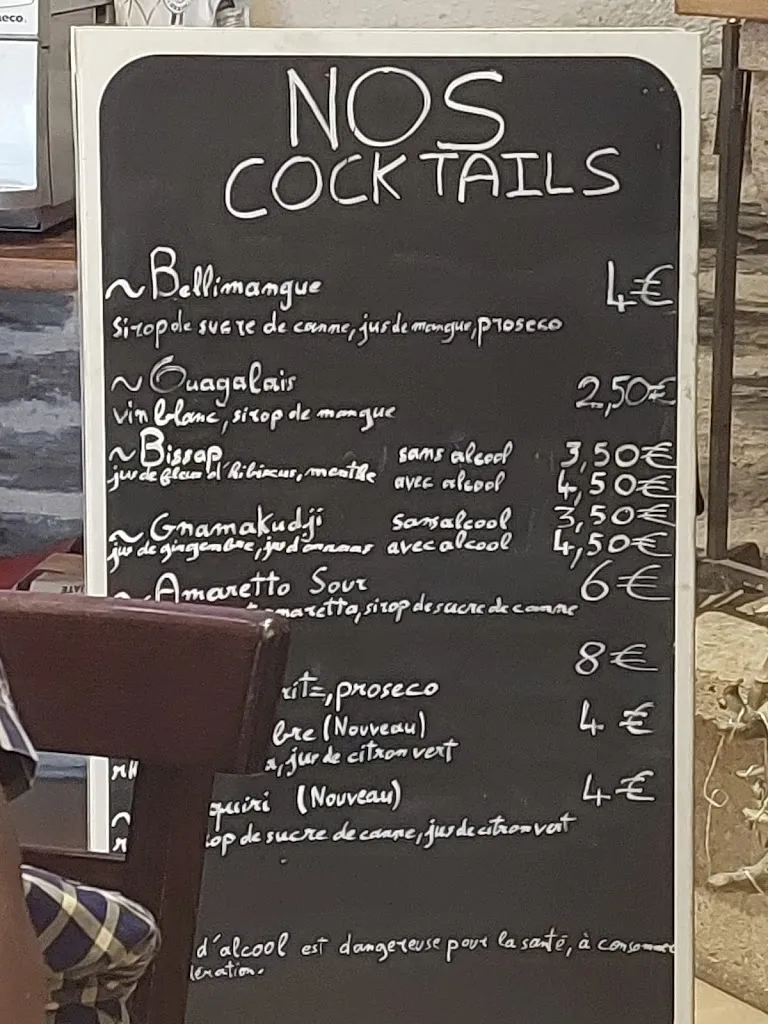 NOS
COCKTAILS
~ Bellimangue 4€
sirop de sucre de canne, jus de mangue, proseco
~ Ouagalais 2,50€
vin blanc, sirop de mangue
~ Bissap sans alcool 3,50€
jus de fleur d'hibiscus, menthe avec alcool 4,50€
~ Gnamakudji sans alcool 3,50€
jus de gingembre, jus d'ananas avec alcool 4,50€
~ Amaretto Sour 6€
maretto, sirop de sucre de canne
8€
ritz, proseco
bre (Nouveau) 4€
, jus de citron vert
quiri (Nouveau) 4€
rop de sucre de canne, jus de citron vert
d'alcool est dangereuse pour la santé, à consommer
dération.